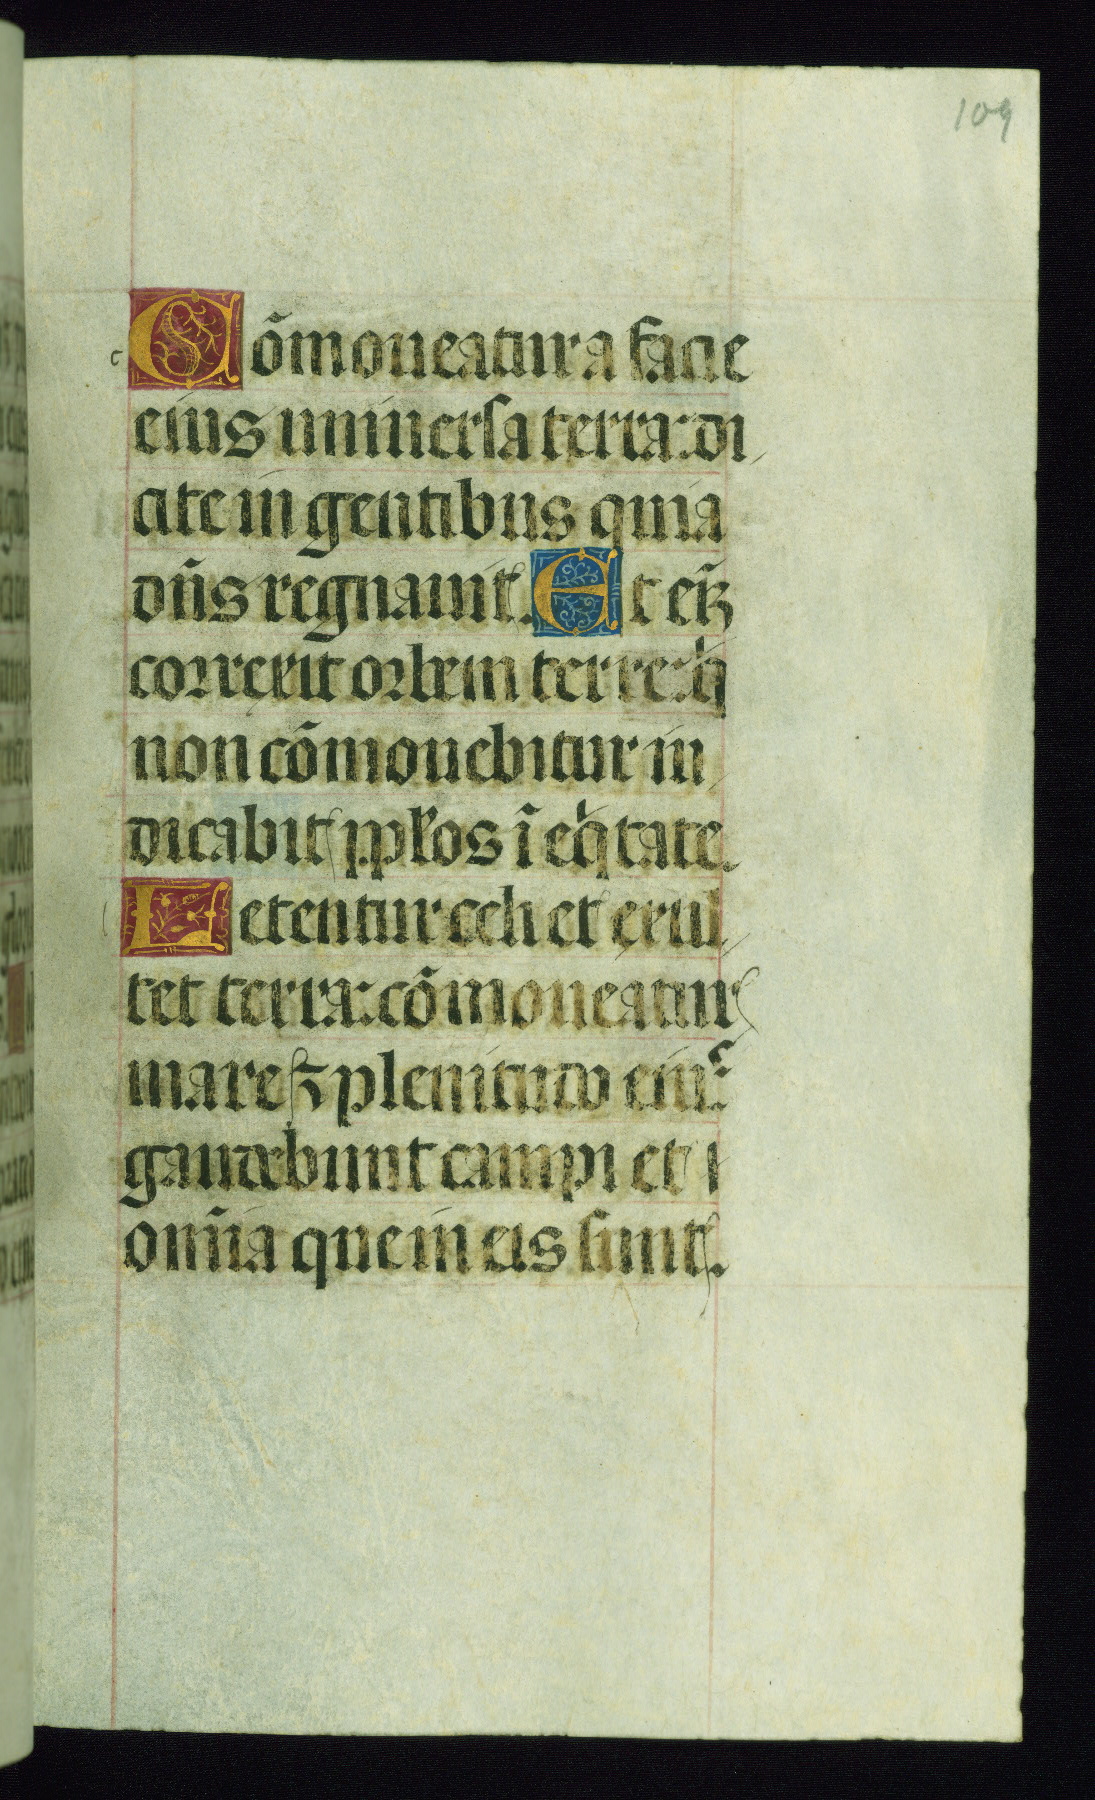 109
c
Cõmoueatur a facie
eius uniuersa terra: di
cite in gentibus quia
dñs regnauit. Et eñ
correxit orbem terre: q
non cõmouebitur iu
dicabit pplos ĩ eqtate.
Letentur celi et exul
tet terra: cõmoueatur
mare ⁊ plenitudo eius:
gaudebunt campi et
omĩa que in eis sunt.